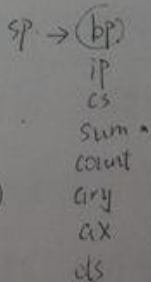 sp → (bp)
ip
cs
sum
count
ary
ax
ds